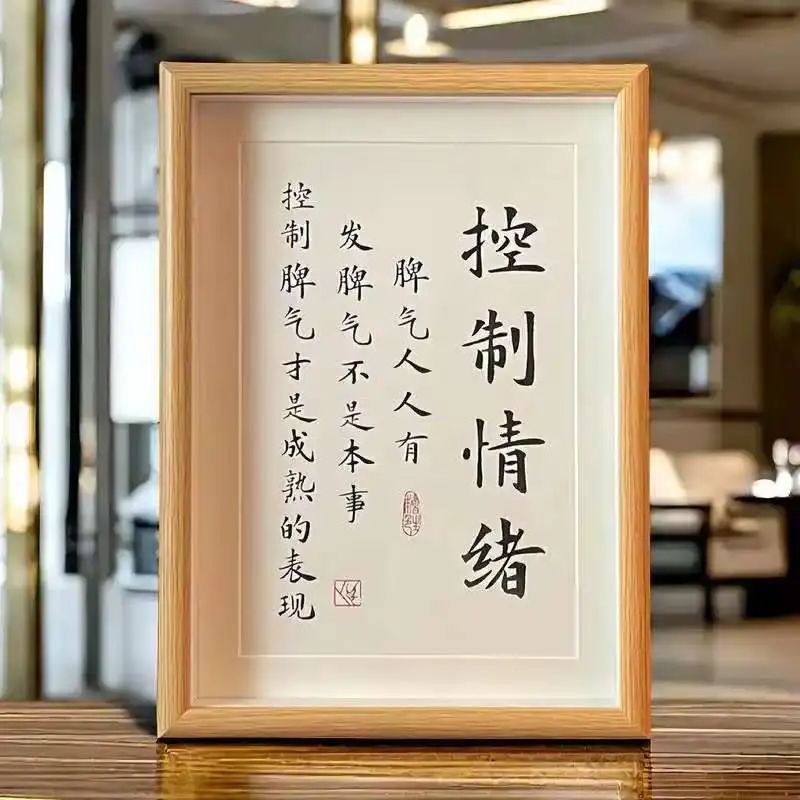 控制情绪
脾气人人有
发脾气不是本事
控制脾气才是成熟的表现